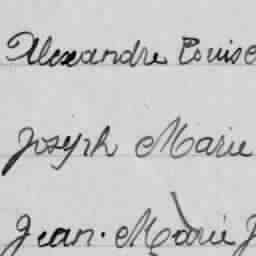 Alexandre Louise
Joseph Marie
Jean-Marie J